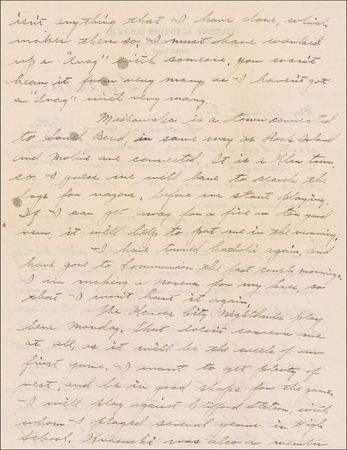 isn't anything that I have done, which
makes them so. I must have worked
up a "drag" with someone, you won't
hear it from very many, as I haven't got
a "drag" with very many.
Mishawaka is a town connected
to South Bend in same way as Rock Island
and Moline are connected. It is a Klan town,
so I guess we will have to search the
boys for razors, before we start playing.
If I can get away for a five or ten yard
run, it will help to put me in the running.
I have turned Catholic again, and
have gone to Communion the last couple mornings.
I am making a Novena for my knee, so
that I won't hurt it again.
The Kansas City Nighthawks play
here Monday. That doesn't concern me
at all, as it will be the week of our
first game. I want to get plenty of
rest, and be in good shape for the game.
I will play against Clifford, with
whom I played several games in High
School. was also a member